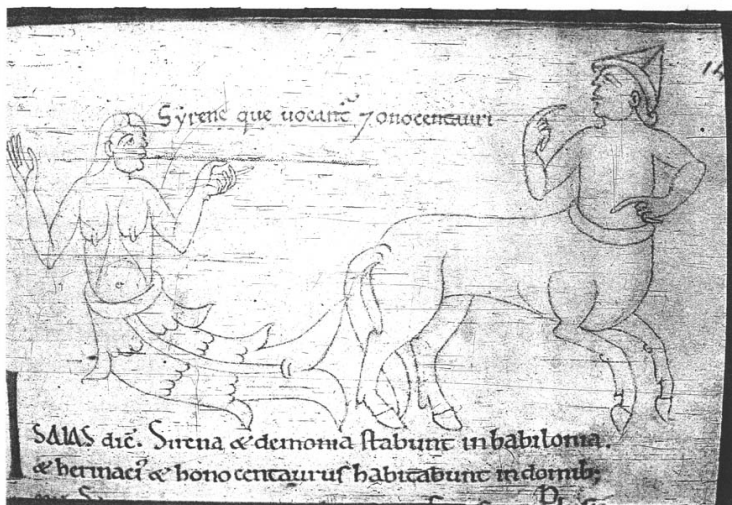 Syrene que uocant᷑ ⁊ onocentauri
14
ISAIAS dic̄. Sirena & demonia stabunt in babilonia.
& herinaci᷒ & honocentaurus habitabunt in domib;